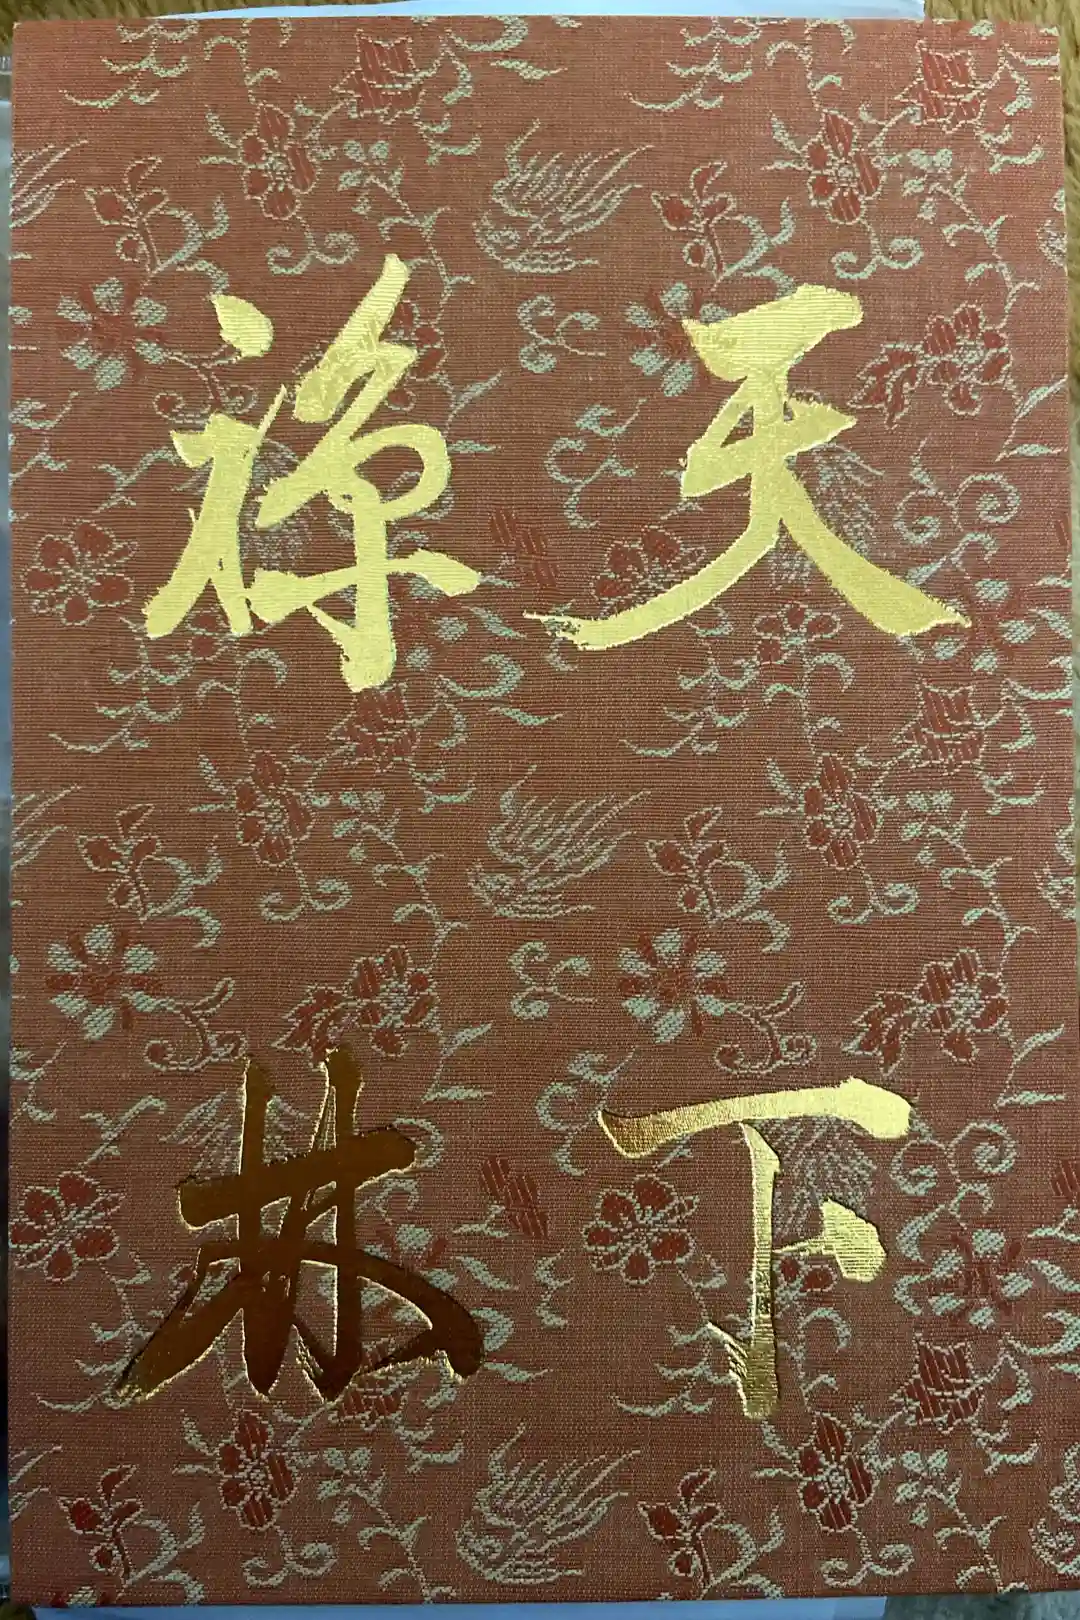 天下
禅林